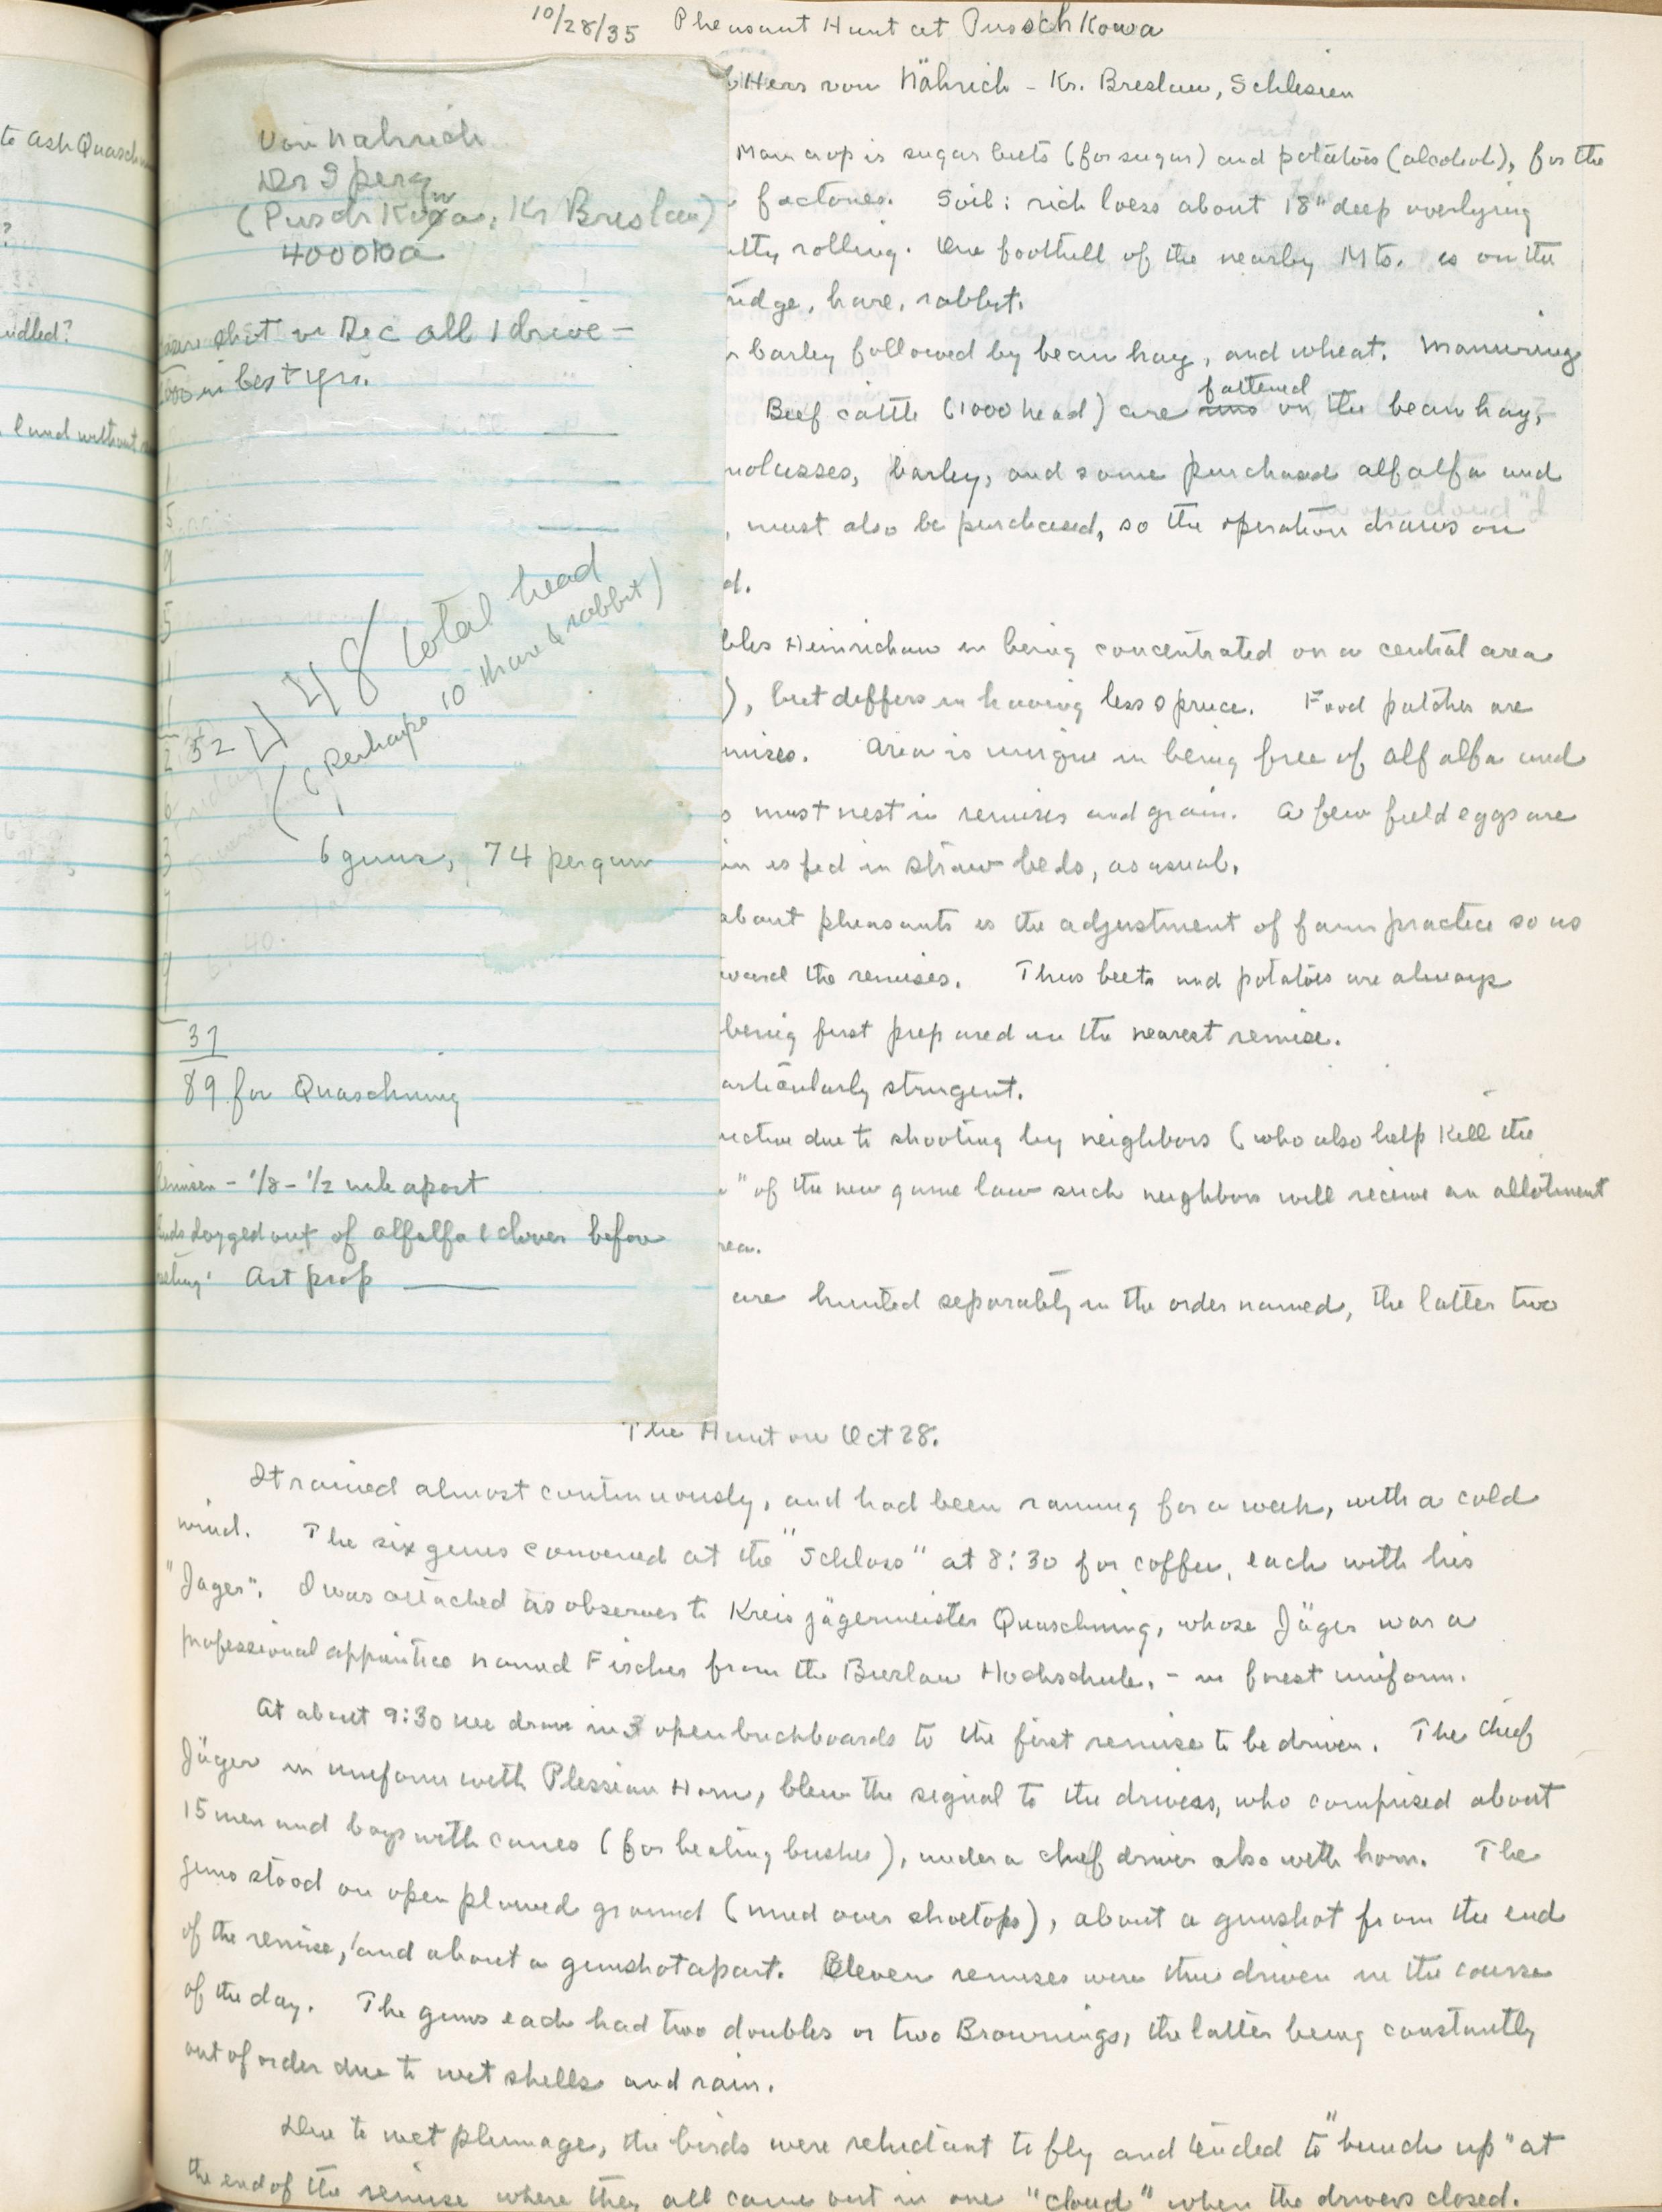 10/28/35 Pheasant Hunt at Puschkowa
Herr von Nährich - Kr. Breslau, Schlesien
Main crop is sugar beets (for sugar) and potatoes (alcohol), for the
factories. Soil: rich loess about 18" deep overlying
rolling. One foothill of the nearby Mts. is on the
ridge, hare, rabbit.
barley followed by bean hay, and wheat. Manuring
Beef cattle (1000 head) are fattened on the bean hay,
molasses, barley, and some purchased alfalfa and
, must also be purchased, so the operation draws on
d.
bles Heinrichau in being concentrated on a central area
), but differs in having less spruce. Food patches are
mises. Area is unique in being free of alfalfa and
s must nest in remises and grain. A few field eggs are
in is fed in straw beds, as usual.
about pheasants is the adjustment of farm practice so as
ward the remises. Thus beets and potatoes are always
being first prepared in the nearest remise.
articularly stringent.
due to shooting by neighbors (who also help kill the
" of the new game law such neighbors will receive an allotment
rea.
are hunted separately in the order named, the latter two
to ask Quasch
?
ndled?
land without
Von Nahrich
Dr Sperg
(Puschkowa, Kr Breslau)
4000 ha
shot in Dec all 1 drive -
in best yrs.
1
5
9
5
11
1
2 52
448 total head
(Perhaps 10 hare & rabbit)
6
6 guns, 74 per gun
3
7
9
1
37
89 for Quaschning
Remisen - 1/8 - 1/2 mile apart
dogged out of alfalfa & clover before
Art prop ———
The Hunt on Oct 28.
It rained almost continuously, and had been raining for a week, with a cold
wind. The six guns convened at the "Schloss" at 8:30 for coffee, each with his
"Jager". I was attached as observer to Kreisjägermeister Quaschning, whose Jäger was a
professional apprentice named Fischer from the Breslau Hochschule, - in forest uniform.
At about 9:30 we drove in 3 open buckboards to the first remise to be driven. The chief
Jäger in uniform with Plessian Horn, blew the signal to the drivers, who comprised about
15 men and boys with canes (for beating bushes), under a chief driver also with horn. The
guns stood on open plowed ground (mud over shoetops), about a gunshot from the end
of the remise, and about a gunshot apart. Eleven remises were thus driven in the course
of the day. The guns each had two doubles or two Brownings, the latter being constantly
out of order due to wet shells and rain.
Due to wet plumage, the birds were reluctant to fly and tended to "bunch up" at
the end of the remise where they all came out in one "cloud" when the drivers closed.